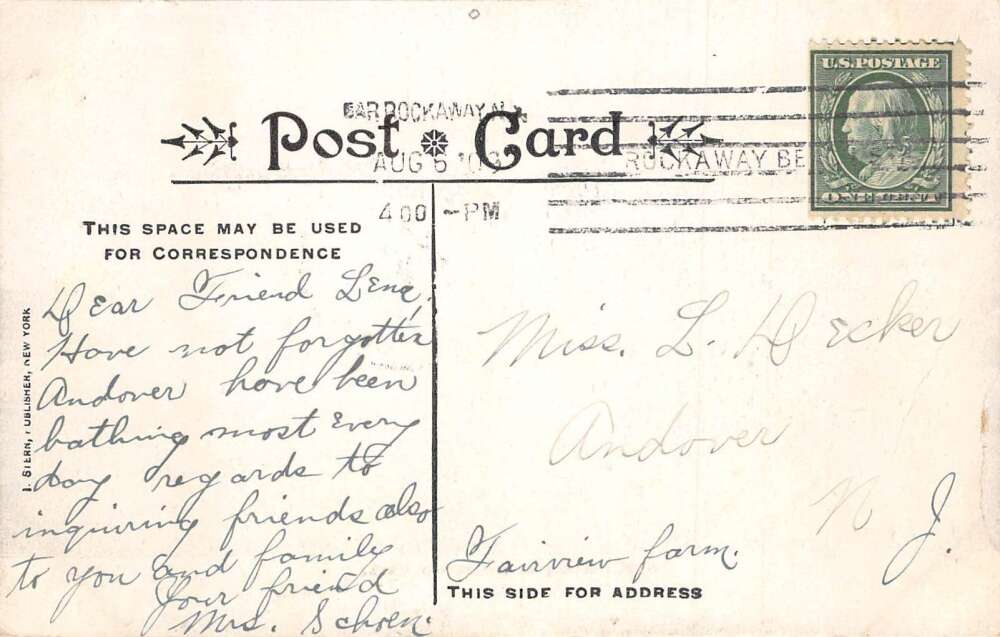 Post Card
FAR ROCKAWAY N.Y.
AUG 5
4 00 - PM
ROCKAWAY BE
U.S. POSTAGE
ONE CENT
THIS SPACE MAY BE USED
FOR CORRESPONDENCE
Dear Friend Lena,
Have not forgotten
Andover have been
bathing most Every
day regards to
inquiring friends also
to you and family
Your friend
Mrs. Schoen.
Miss. L. Decker
Andover
N J.
Fairview farm.
THIS SIDE FOR ADDRESS
I. STERN, PUBLISHER, NEW YORK